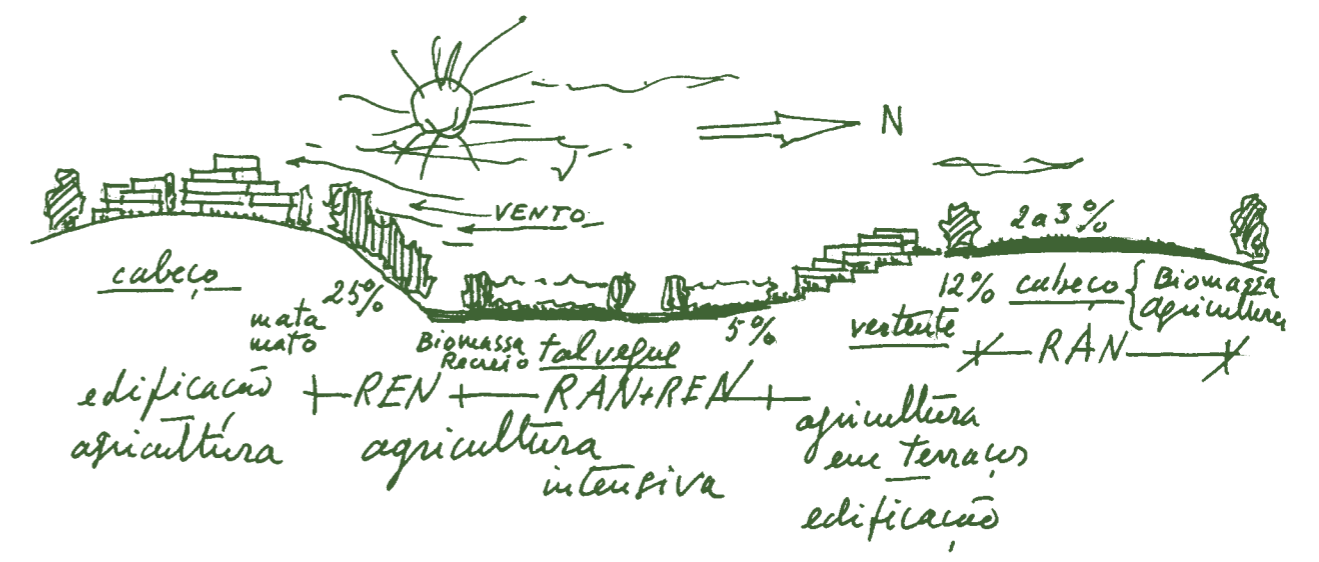 N
VENTO
2 a 3 %
cabeço
25%
mata
mato
Biomassa
Recreio
talvegue
5%
vertente
12%
cabeço
Biomassa
agricultura
RAN
edificação
agricultura
REN
RAN+REN
agricultura
intensiva
agricultura
em terraços
edificação